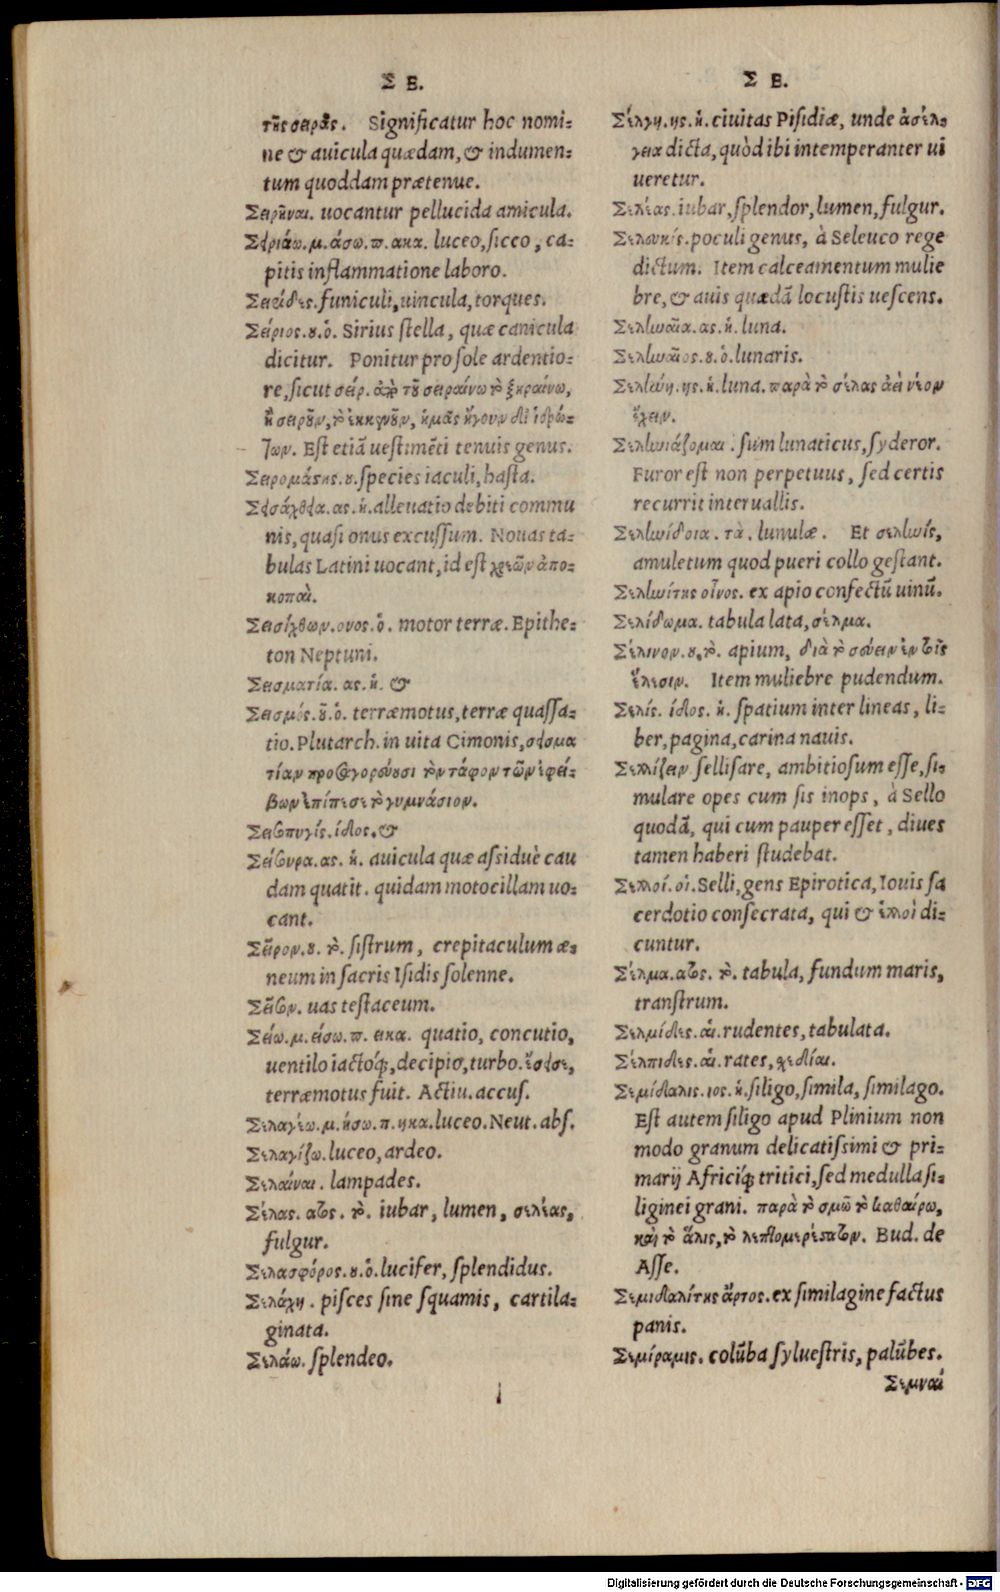 Σ E.
τῆς σειρᾶς. Significatur hoc nomi-
ne & auicula quædam, & indumen-
tum quoddam prætenue.
Σειρῆναι. uocantur pellucida amicula.
Σειριάω. μ. άσω. π. ακα. luceo, sicco, ca-
pitis inflammatione laboro.
funiculi, uincula, torques.
Σείριος. ου. ὁ. Sirius stella, quæ canicula
dicitur. Ponitur pro sole ardentio-
re, sicut σείρ. τοῦ σειραίνω τὸ ξηραίνω,
ἢ σειροῦν, τὸ ἐκκενοῦν, ἡμᾶς ἤγουν δι' ἱδρώ-
των. Est etiã uestimẽti tenuis genus.
Σειρομάστης. ου. species iaculi, hasta.
Σεισάχθεια. ας. ἡ. alleuatio debiti commu
nis, quasi onus excussum. Nouas ta-
bulas Latini uocant, id est χρεῶν ἀπο-
κοπαὶ.
Σεισίχθων. ονος. ὁ. motor terræ. Epithe-
ton Neptuni.
Σεισματία. ας. ἡ. &
Σεισμός. οῦ. ὁ. terræmotus, terræ quassa-
tio. Plutarch. in uita Cimonis, σεισμα
τίαν προσαγορεύουσι τὸν τάφον τῶν ἐφεί-
βων ἐπίπεσε τὸ γυμνάσιον.
Σεισοπυγίς. ίδος. &
Σείσουρα. ας. ἡ. auicula quæ assiduè cau
dam quatit. quidam motocillam uo-
cant.
Σεῖστρον. ου. τὸ. sistrum, crepitaculum æ-
neum in sacris Isidis solenne.
uas testaceum.
Σείω. μ. είσω. π. εικα. quatio, concutio,
uentilo iactoq́;, decipio, turbo. ἔσεισε,
terræmotus fuit. Actiu. accus.
Σελαγέω. μ. ήσω. π. ηκα. luceo. Neut. abs.
Σελαγίζω. luceo, ardeo.
Σελάναι. lampades.
Σέλας. ατος. τὸ. iubar, lumen, σελέας,
fulgur.
Σελασφόρος. ου. ὁ. lucifer, splendidus.
Σελάχη. pisces sine squamis, cartila-
ginata.
Σελάω. splendeo.
Σ E.
Σέλγη. ης. ἡ. ciuitas Pisidiæ, unde ἀσέλ-
γεια dicta, quòd ibi intemperanter ui
ueretur.
Σελέας. iubar, splendor, lumen, fulgur.
Σελευκίς. poculi genus, à Seleuco rege
dictum. Item calceamentum mulie
bre, & auis quædã locustis uescens.
Σεληναία. ας. ἡ. luna.
Σεληναῖος. ου. ὁ. lunaris.
Σελήνη. ης. ἡ. luna. παρὰ τὸ σέλας ἀεὶ νέον
ἔχειν.
Σεληνιάζομαι. sum lunaticus, syderor.
Furor est non perpetuus, sed certis
recurrit interuallis.
Σεληνίδοια. τὰ. lunulæ. Et σεληνίς,
amuletum quod pueri collo gestant.
Σεληνίτης οἶνος. ex apio confectũ uinũ.
Σελίδωμα. tabula lata, σέλμα.
Σέλινον. ου. τὸ. apium, διὰ τὸ σεύειν ἐν τοῖς
ἕλεσιν. Item muliebre pudendum.
Σελίς. ίδος. ἡ. spatium inter lineas, li-
ber, pagina, carina nauis.
Σελλίζειν sellisare, ambitiosum esse, si-
mulare opes cum sis inops, à Sello
quodã, qui cum pauper esset, diues
tamen haberi studebat.
Σελλοί. οἱ. Selli, gens Epirotica, Iouis sa
cerdotio consecrata, qui & ἑλλοὶ di-
cuntur.
Σέλμα. ατος. τὸ. tabula, fundum maris,
transtrum.
Σελμίδες. αἱ. rudentes, tabulata.
Σέλπιδες. αἱ. rates, σχεδίαι.
Σεμίδαλις. ιος. ἡ. siligo, simila, similago.
Est autem siligo apud Plinium non
modo granum delicatissimi & pri-
marij Africiq́; tritici, sed medulla si-
liginei grani. παρὰ τὸ σμῶ τὸ καθαίρω,
καὶ τὸ ἅλις, τὸ λεπτομερέστατον. Bud. de
Asse.
Σεμιδαλίτης ἄρτος. ex similagine factus
panis.
Σεμίραμις. colũba syluestris, palũbes.
Σεμναί
Digitalisierung gefördert durch die Deutsche Forschungsgemeinschaft - DFG